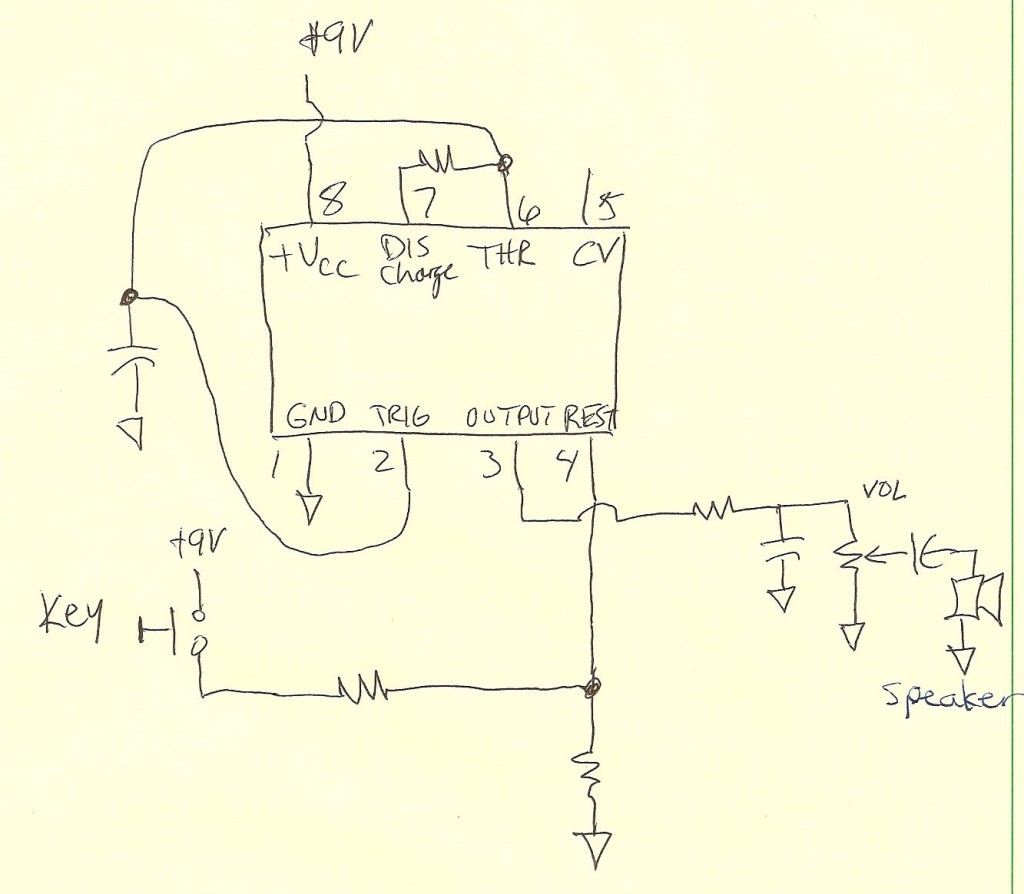 +9V
8 7 6 5
+VCC DIS Charge THR CV
GND TRIG OUTPUT REST
1 2 3 4
VOL
+9V
Key
Speaker